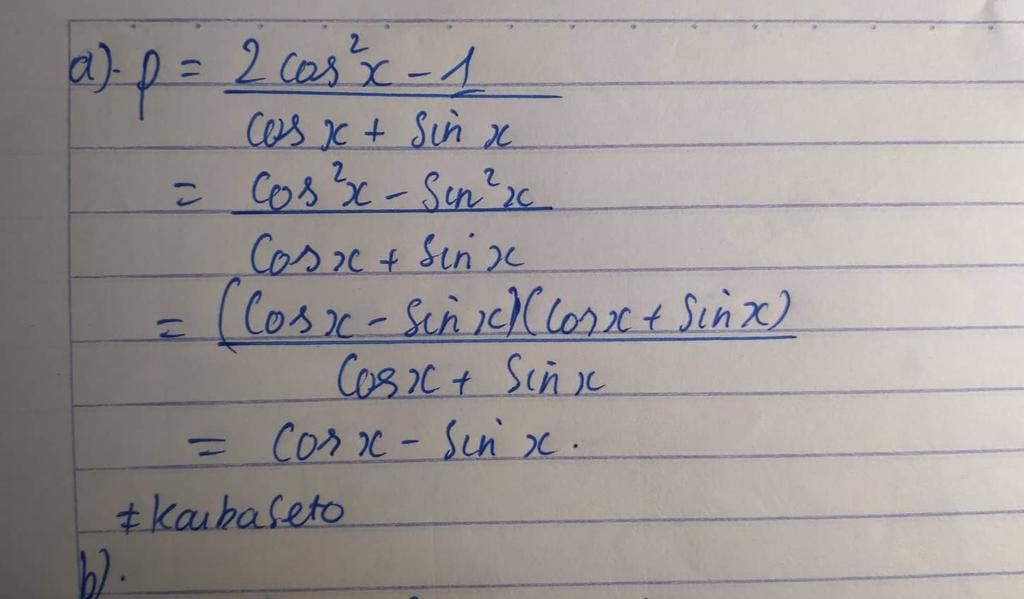 a). P = 2 cos²x - 1
cos x + sin x
= cos²x - sin²x
cos x + sin x
= (cos x - sin x)(cos x + sin x)
cos x + sin x
= cos x - sin x.
b).